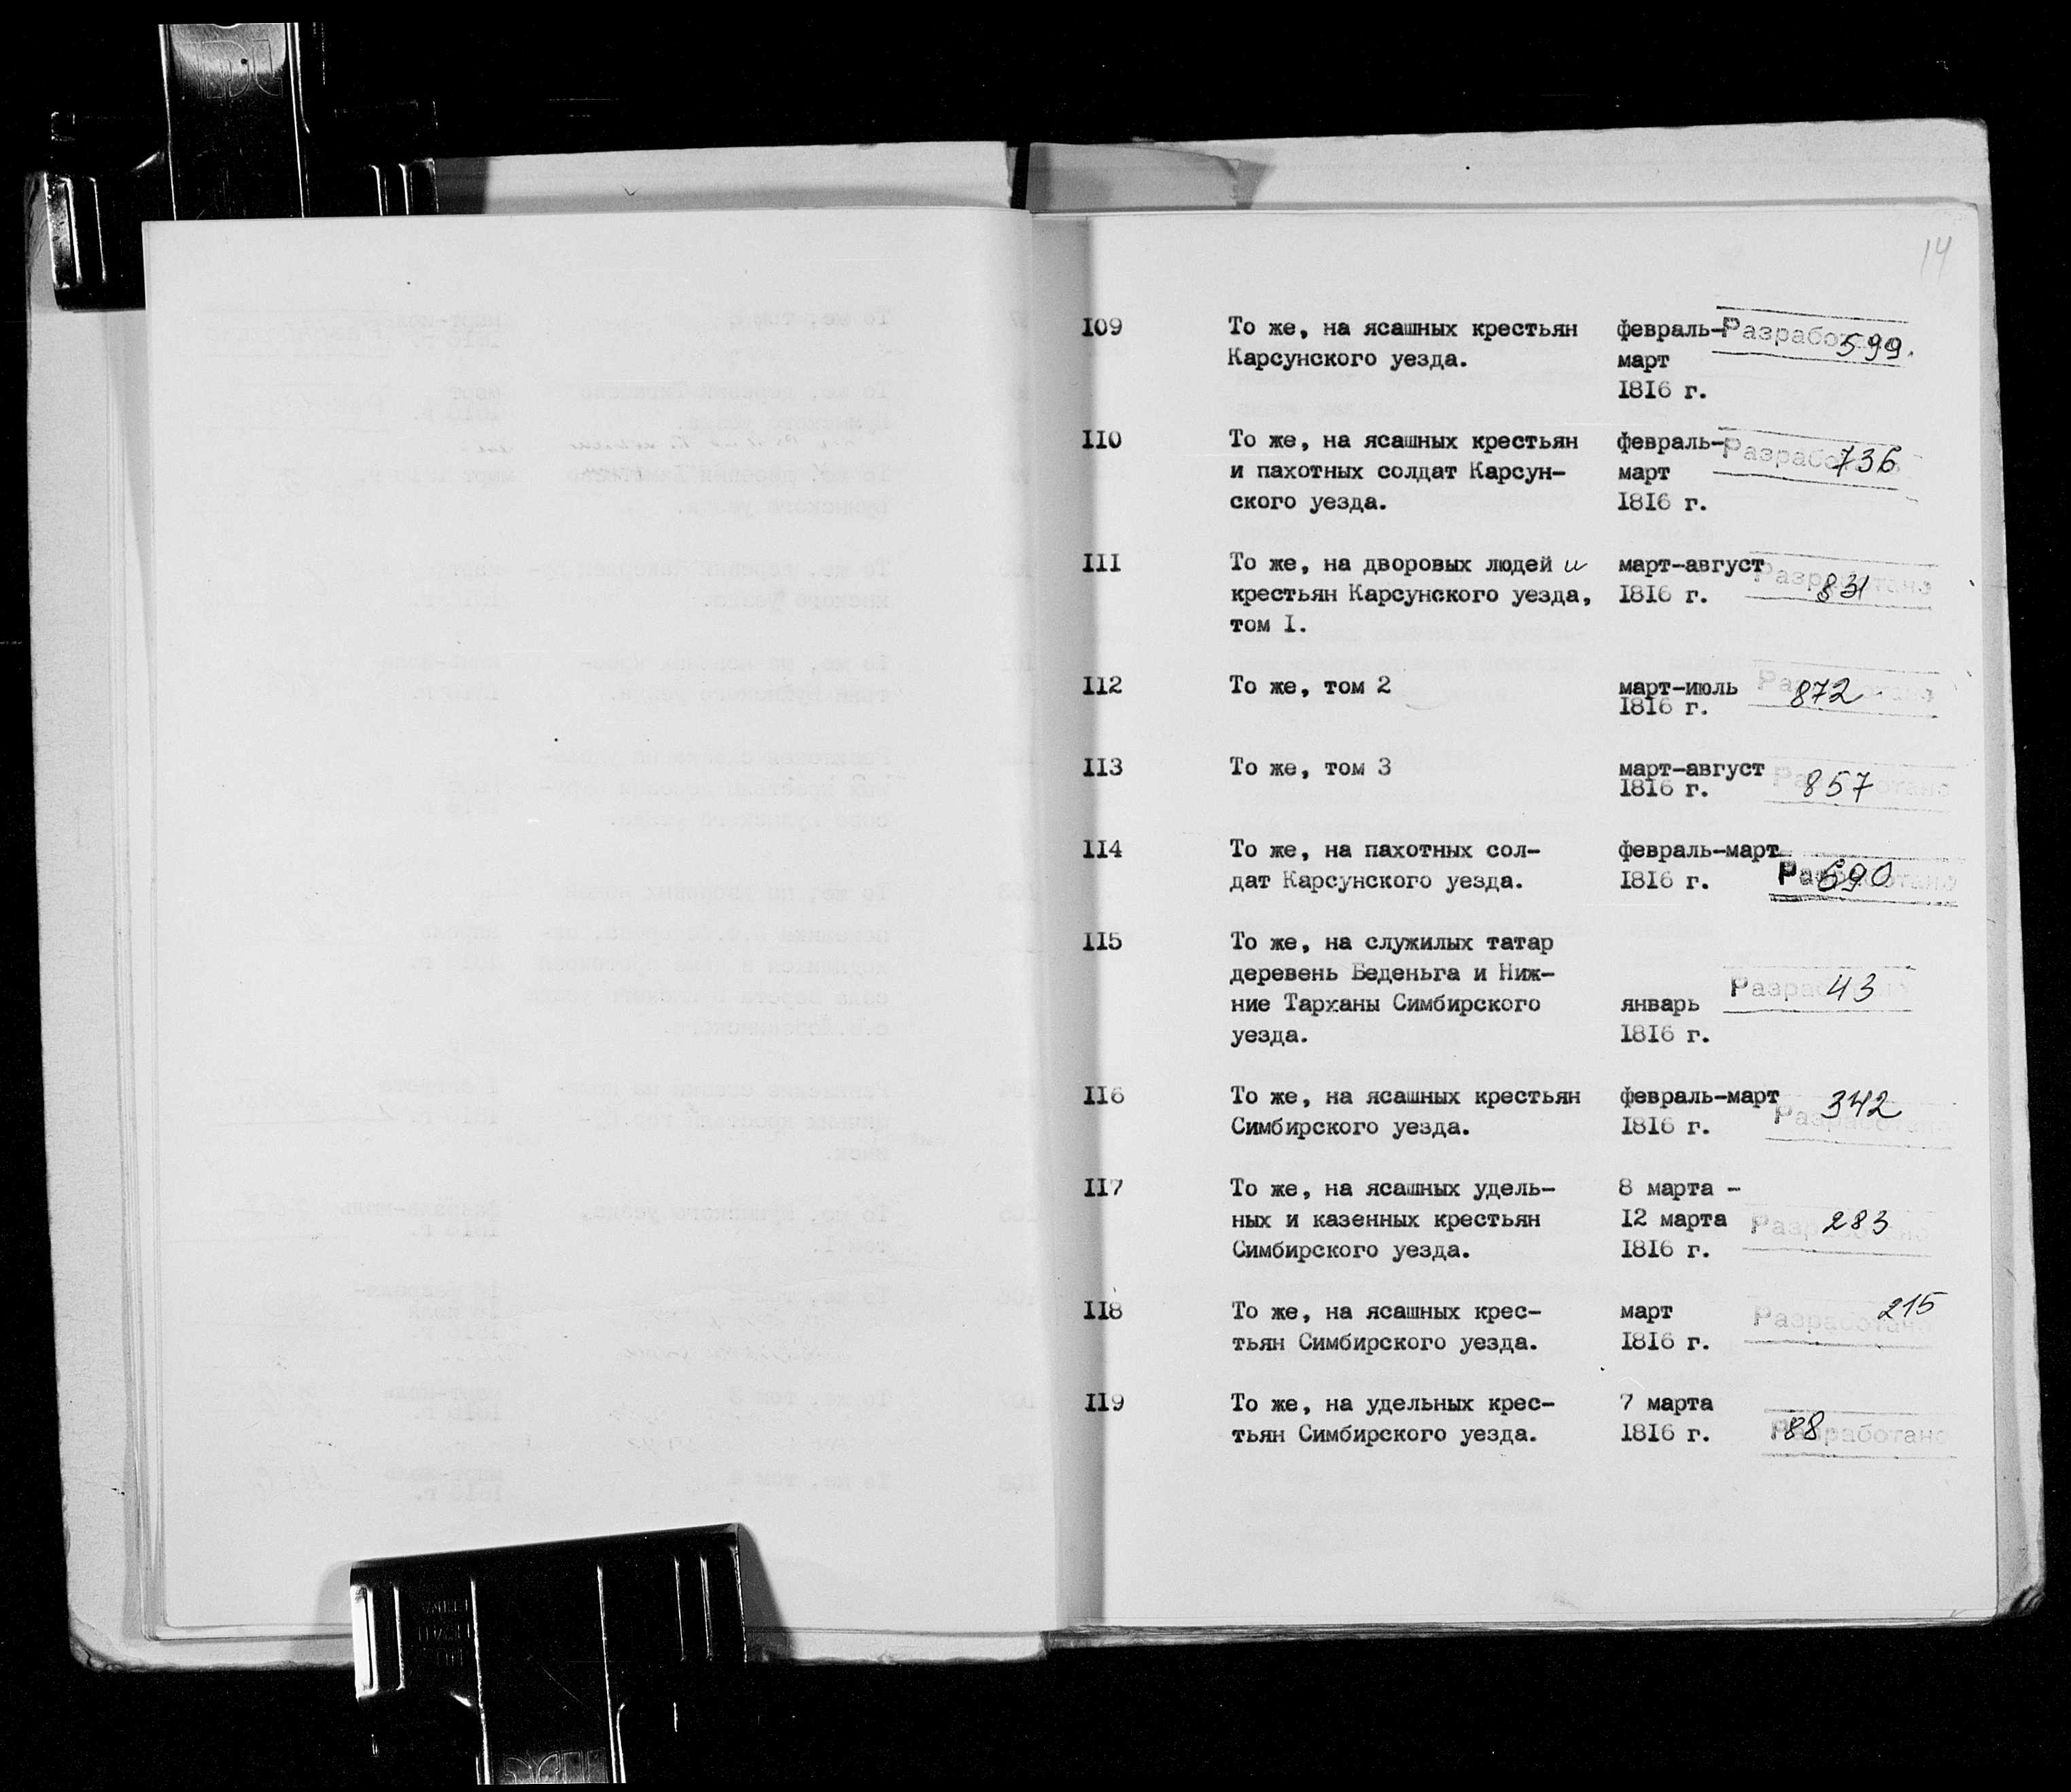 14
109 То же, на ясашных крестьян февраль- Разработано 599.
Карсунского уезда. март
1816 г.
110 То же, на ясашных крестьян февраль- Разработано 736
и пахотных солдат Карсун- март
ского уезда. 1816 г.
111 То же, на дворовых людей и март-август Разработано
крестьян Карсунского уезда, 1816 г. 831
том 1.
112 То же, том 2 март-июль Разработано 872
1816 г.
113 То же, том 3 март-август Разработано
1816 г. 857
114 То же, на пахотных сол- февраль-март
дат Карсунского уезда. 1816 г. Разработано 690
115 То же, на служилых татар
деревень Беденьга и Ниж-
ние Тарханы Симбирского январь Разработано 43
уезда. 1816 г.
116 То же, на ясашных крестьян февраль-март 342
Симбирского уезда. 1816 г. Разработано
117 То же, на ясашных удель- 8 марта -
ных и казенных крестьян 12 марта Разработано 283
Симбирского уезда. 1816 г.
118 То же, на ясашных крес- март Разработано 215
тьян Симбирского уезда. 1816 г.
119 То же, на удельных крес- 7 марта
тьян Симбирского уезда. 1816 г. Разработано 88